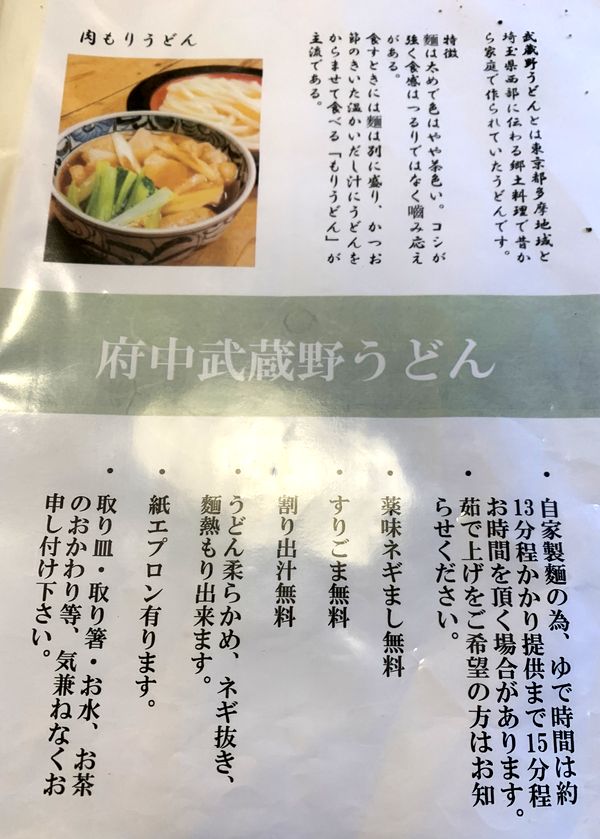 武蔵野うどんとは東京都多摩地域と
埼玉県西部に伝わる郷土料理で昔か
ら家庭で作られていたうどんです。
特徴
麺は太めで色はやや茶色い。コシが
強く食感はつるりではなく噛み応え
がある。
食すときには麺は別に盛り、かつお
節のきいた温かいだし汁にうどんを
からませて食べる「もりうどん」が
主流である。
肉もりうどん
府中武蔵野うどん
・自家製麺の為、ゆで時間は約
13分程かかり提供まで15分程
お時間を頂く場合があります。
・茹で上げをご希望の方はお知
らせください。
・薬味ネギまし無料
・すりごま無料
・割り出汁無料
・うどん柔らかめ、ネギ抜き、
麺熱もり出来ます。
・紙エプロン有ります。
・取り皿・取り箸・お水、お茶
のおかわり等、気兼ねなくお
申し付け下さい。